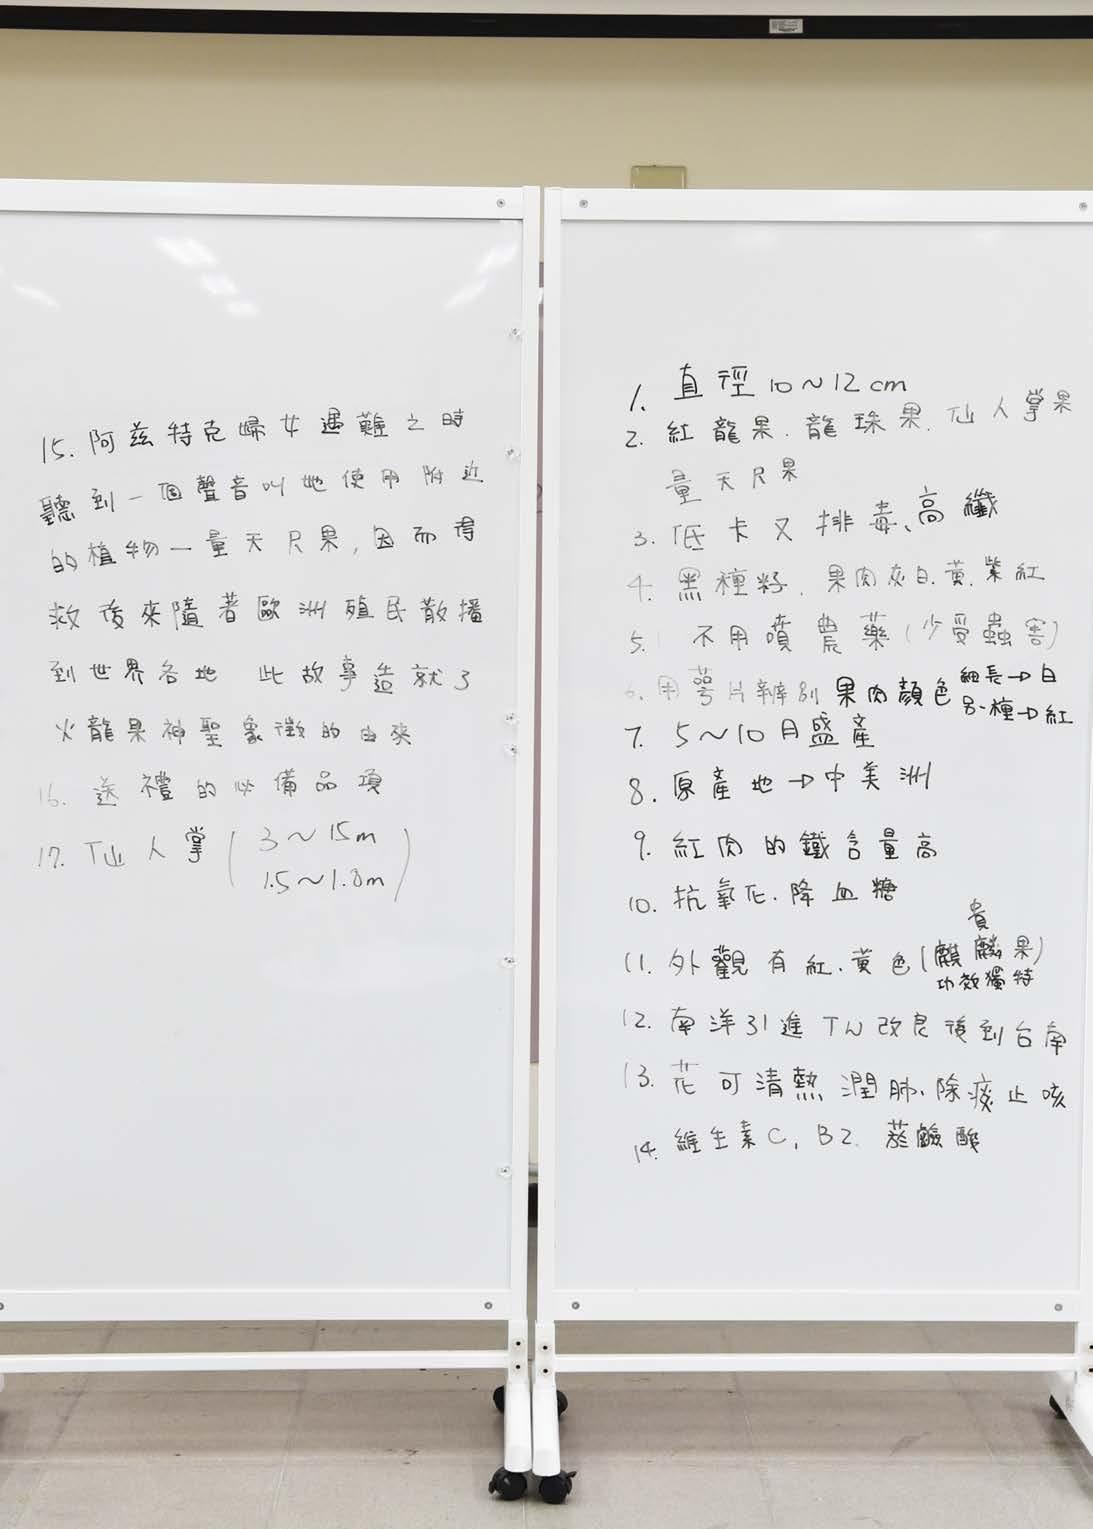 15. 阿茲特克婦女遇難之時
聽到一個聲音叫她使用附近
的植物—量天尺果,因而得
救後來隨著歐洲殖民散播
到世界各地 此故事造就了
火龍果神聖象徵的由來
16. 送禮的必備品項
17. 仙人掌(3~15m
1.5~1.8m)
1. 直徑10~12cm
2. 紅龍果.龍珠果.仙人掌果
量天尺果
3. 低卡又排毒、高纖
4. 黑種籽. 果肉灰白.黃.紫紅
5. 不用噴農藥(少受蟲害)
6. 用萼片辨別果肉顏色 細長→白
→紅
7. 5~10月盛產
8. 原產地→中美洲
9. 紅肉的鐵含量高
10. 抗氧化.降血糖
貴
11. 外觀有紅.黃色(麒麟果)
功效獨特
12. 南洋引進TW改良後到台南
13. 花可清熱潤肺.除痰止咳
14. 維生素C, B2. 菸鹼酸